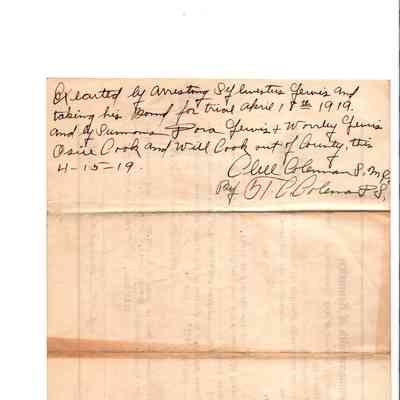 Executed by arresting Sylvester Lewis and
taking his Bond for trial april 18th 1919.
and by Summons Dora Lewis + Worley Lewis
Osiie Cook and Will Cook out of County, this
4-15-19.
Coleman S. M. C.
By T. C. Coleman D.S.